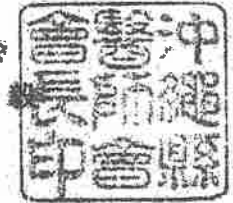 沖繩縣
醫師會
會長印